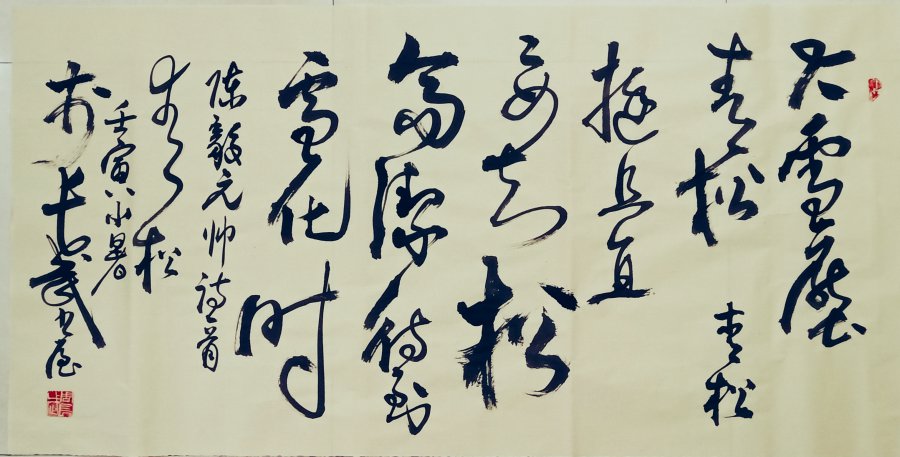 大雪壓
青松 青松
挺且直
要知松
高潔待到
雪化时
陈毅元帅诗首
青松
壬寅小暑
长武书屋